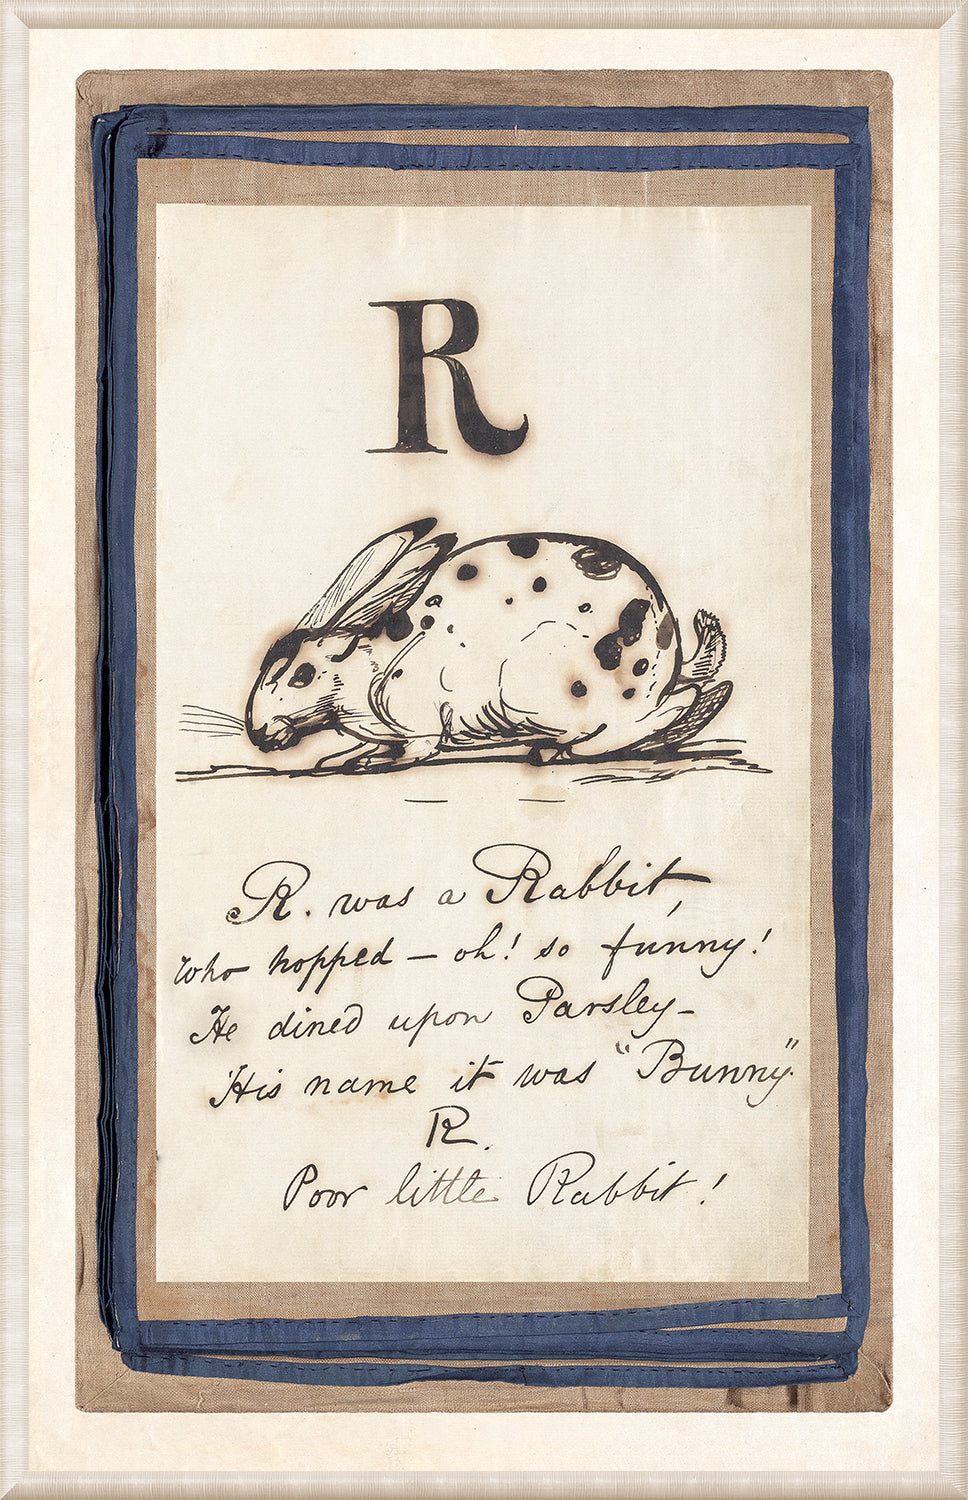 R
R. was a Rabbit,
who hopped — oh! so funny!
He dined upon Parsley –
His name it was "Bunny".
R.
Poor little Rabbit!